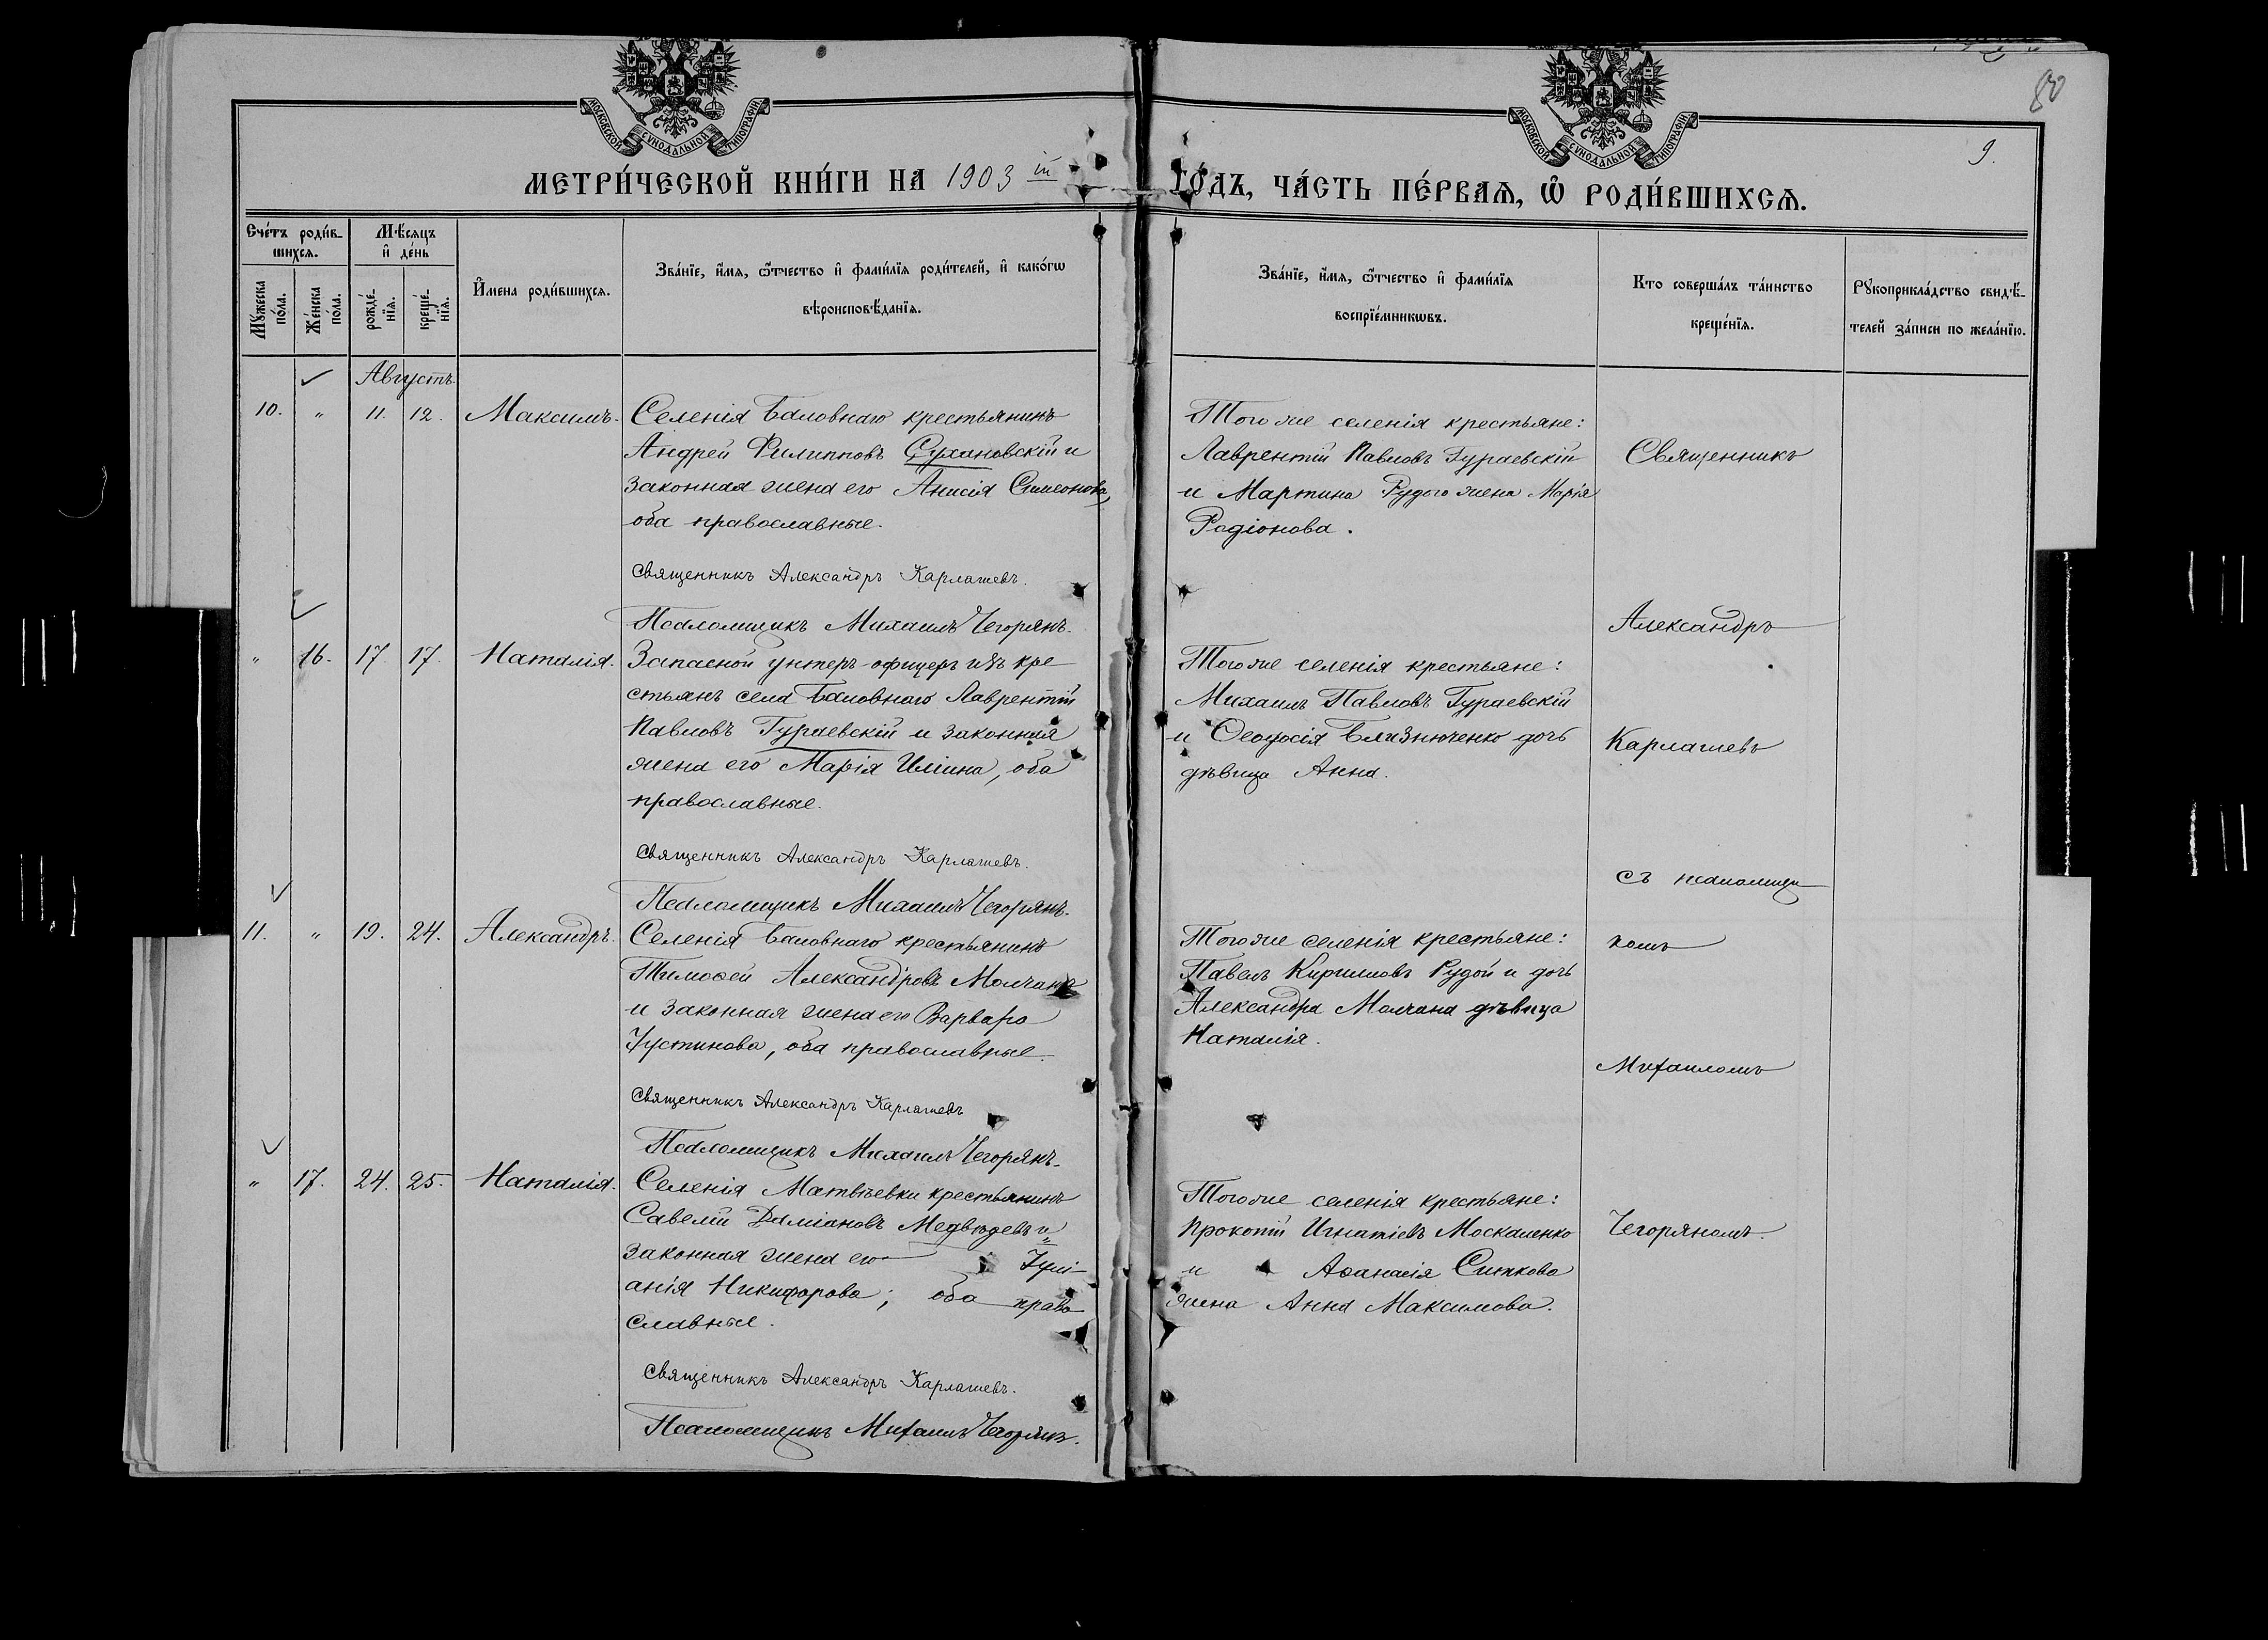 80
9.
МОСКОВСКОЙ СѴНОДАЛЬНОЙ ТИПОГРАФІИ
МОСКОВСКОЙ СѴНОДАЛЬНОЙ ТИПОГРАФІИ
МЕТРИ́ЧЕСКОЙ КНИ́ГИ НА 1903 ій
ГО́ДЪ, ЧА́СТЬ ПЕ́РВАѦ, Ѽ РОДИ́ВШИХСѦ.
Сче́тъ роди́в-
шихсѧ.
Му́жеска
по́ла.
Же́нска
по́ла.
Мѣ́сяцъ
и҆ де́нь
рожде́-
нїѧ.
креще́-
нїѧ.
И҆́мена роди́вшихсѧ.
Зва́нїе, и҆́мѧ, ѻ҆́тчество и҆ фами́лїѧ роди́телей, и҆ како́гѡ
вѣроисповѣ́данїѧ.
Зва́нїе, и҆́мѧ, ѻ҆́тчество и҆ фами́лїѧ
воспрїе́мникѡвъ.
Кто соверша́лъ та́инство
креще́нїѧ.
Рꙋкоприкла́дство свидѣ́-
телей за́писи по жела́нїю.
Августъ.
10. " 11. 12. Максимъ.
Селенія Баловнаго крестьянинъ
Андрей Филипповъ Сухановскій и
законная жена его Анисія Симеонова,
оба православные.
Священникъ Александръ Карлашевъ.
Псаломщикъ Михаилъ Чегорянъ.
Того же селенія крестьяне:
Лаврентій Павловъ Гураевскій
и Мартина Рудого жена Марія
Родіонова.
" 16. 17. 17. Наталія.
Запасной унтеръ-офицеръ изъ кре
стьянъ села Баловнаго Лаврентій
Павловъ Гураевскій и законная
жена его Марія Иліина, оба
православные.
Священникъ Александръ Карлашевъ.
Псаломщикъ Михаилъ Чегорянъ.
Того же селенія крестьяне:
Михаилъ Павловъ Гураевскій
и Ѳеодосія Близнюченко дочь
дѣвица Анна.
11. " 19. 24. Александръ.
Селенія Баловнаго крестьянинъ
Тимоѳей Александровъ Молчанъ
и законная жена его Варвара
Іустинова, оба православные.
Священникъ Александръ Карлашевъ
Псаломщикъ Михаилъ Чегорянъ.
Того же селенія крестьяне:
Павелъ Кирилловъ Рудой и дочь
Александра Молчана дѣвица
Наталія.
" 17. 24. 25. Наталія.
Селенія Матвѣевки крестьянинъ
Савелій Даміановъ Медвѣдевъ и
законная жена его Іулі-
анія Никифорова; оба право
славные.
Священникъ Александръ Карлашевъ.
Псаломщикъ Михаилъ Чегорянъ.
Того же селенія крестьяне:
Прокопій Игнатіевъ Москаленко
и Аѳанасія Ситкова
жена Анна Максимова.
Священникъ
Александръ
Карлашевъ
съ псаломщи
комъ
Михаиломъ
Чегоряномъ.